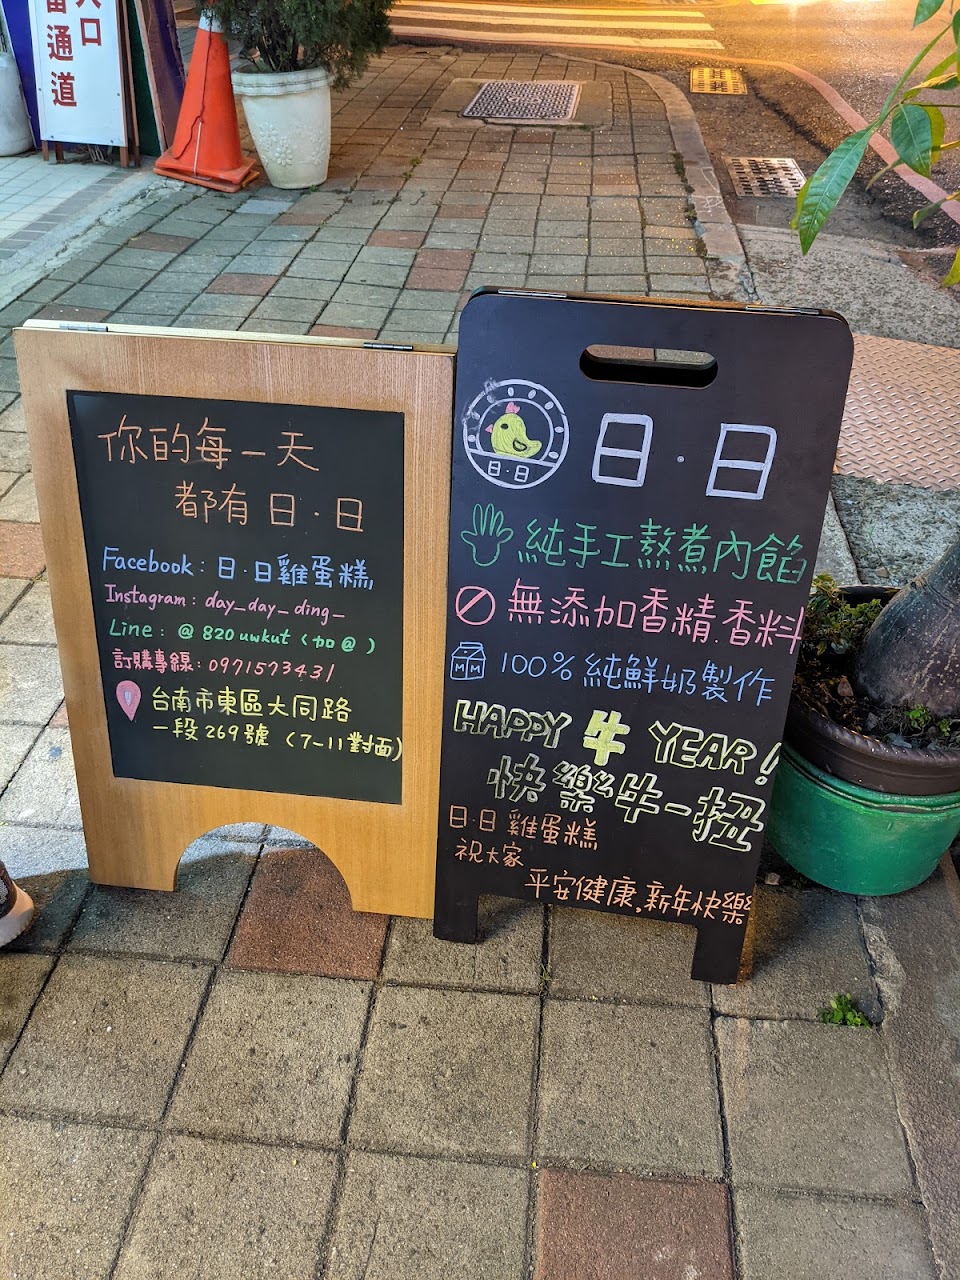 入口
通道
你的每一天
都有日.日
Facebook: 日.日雞蛋糕
Instagram: day_day_ding_
Line: @820uwkut (加@)
訂購專線: 0971573431
台南市東區大同路
一段269號 (7-11對面)
日.日
日.日
純手工熬煮內餡
無添加香精.香料
MM 100%純鮮奶製作
HAPPY 牛 YEAR!
快樂牛一扭
日.日雞蛋糕
祝大家
平安健康,新年快樂